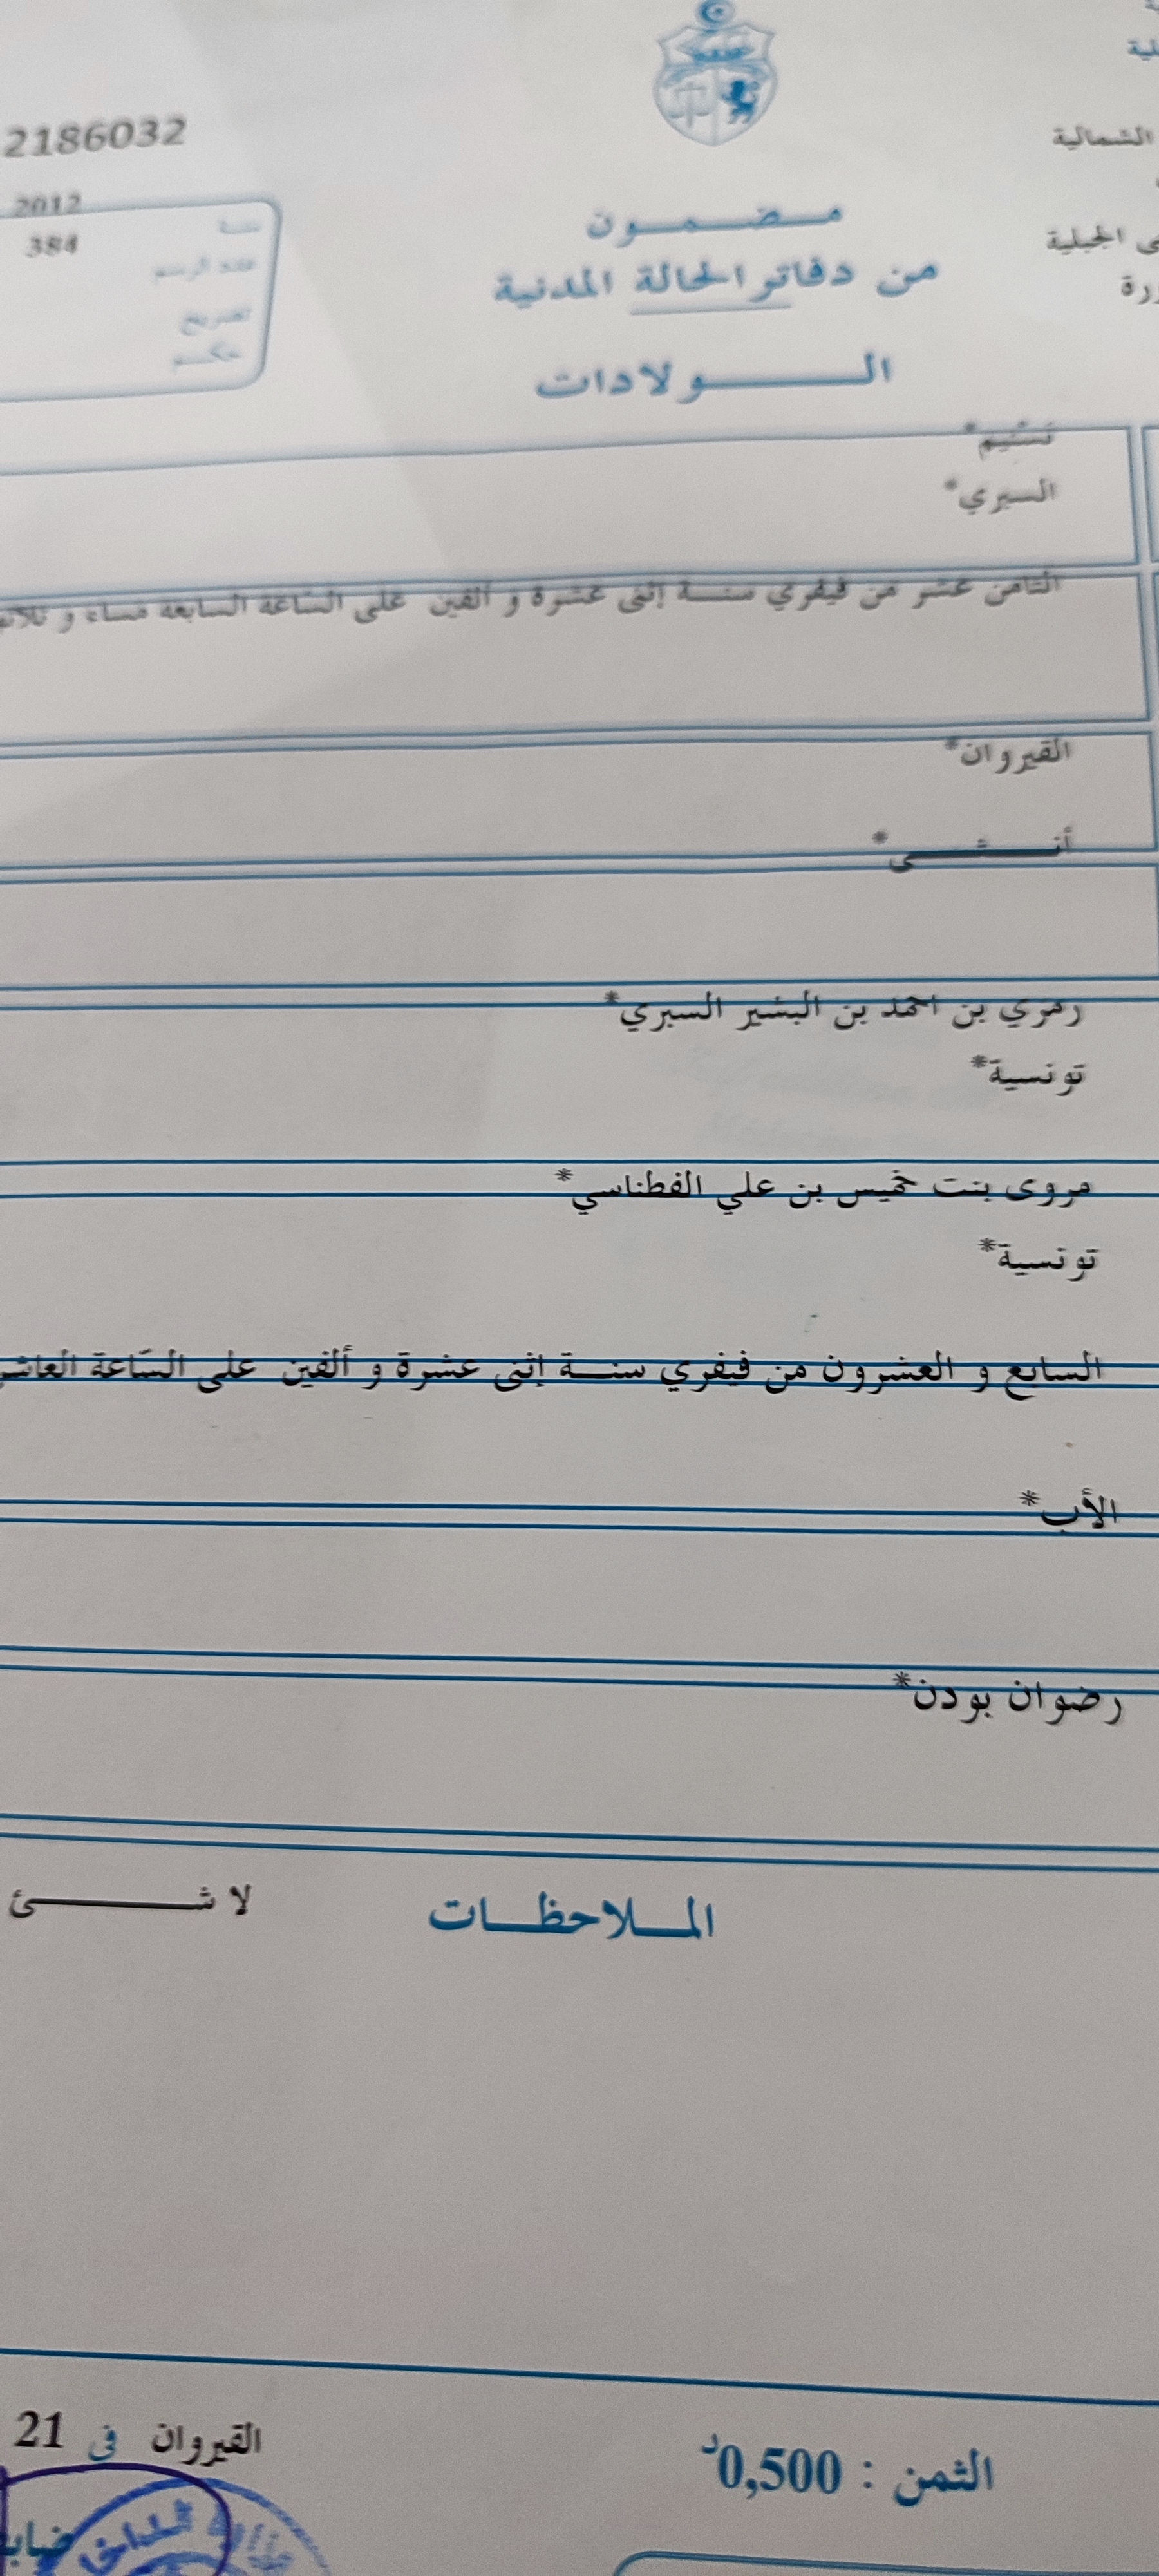 لية
الشمالية
ى الجبلية
2186032
2012
384
سنة
عدد الرسم
تصريح
حكم
مضمون
من دفاتر الحالة المدنية
الولادات
تسنيم*
السبري*
الثامن عشر من فيفري سنة إثنى عشرة و ألفين على الساعة السابعة مساء و
القيروان*
أنثى*
رمزي بن احمد بن البشير السبري*
تونسية*
مروى بنت خميس بن علي الفطناسي*
تونسية*
السابع و العشرون من فيفري سنة إثنى عشرة و ألفين على السّاعة
الأب*
رضوان بودن*
الملاحظات
لا شئ
القيروان في 21
الثمن : 0,500د